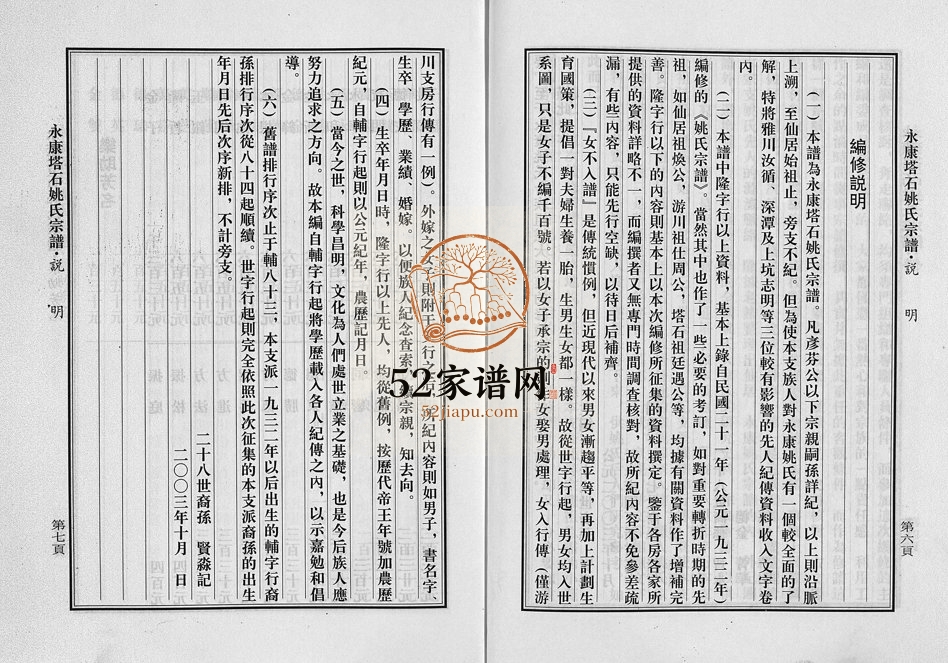 永康塔石姚氏宗譜·説 明
第六頁
編修説明
(一)本譜為永康塔石姚氏宗譜。凡彦芬公以下宗親嗣孫詳紀,以上則沿脈
上溯,至仙居始祖止,旁支不紀。但為使本支族人對永康姚氏有一個較全面的了
解,特將雅川汝循、深潭及上坑志明等三位較有影響的先人紀傳資料收入文字卷
内。
(二)本譜中隆字行以上資料,基本上錄自民國二十一年(公元一九三二年)
編修的《姚氏宗譜》。當然其中也作了一些必要的考訂,如對重要轉折時期的先
祖,如仙居祖焕公,游川祖仕周公,塔石祖廷遇公等,均據有關資料作了增補完
善。隆字行以下的内容則基本上以本次編修所征集的資料撰定。鑒于各房各家所
提供的資料詳略不一,而編撰者又無專門時間調查核對,故所紀内容不免參差疏
漏,有些内容,只能先行空缺,以待日后補齊。
(三)『女不入譜』是傳統慣例,但近現代以來男女漸趨平等,再加上計劃生
育國策,提倡一對夫婦生養一胎,生男生女都一樣。故從世字行起,男女均入世
系圖,只是女子不編千百號。若以女子承宗的則女娶男處理,女入行傳(僅游
川支房行傳有一例)。外嫁之女子則附于行之后,所紀内容則如男子,書名字、
生卒、學歷、業績、婚嫁。以便族人紀念查索,宗親,知去向。
(四)生卒年月日時,隆字行以上先人,均從舊例,按歷代帝王年號加農歷
紀元,自輔字行起則以公元紀年,農歷記月日。
(五)當今之世,科學昌明,文化為人們處世立業之基礎,也是今后族人應
努力追求之方向。故本編自輔字行起將學歷載入各人紀傳之内,以示嘉勉和倡
導。
(六)舊譜排行序次止于輔八十三,本支派一九三二年以后出生的輔字行裔
孫排行序次從八十四起順續。世字行起則完全依照此次征集的本支派裔孫的出生
年月日先后次序新排,不計旁支。
二十八世裔孫 賢淼記
二〇〇三年十月 日
永康塔石姚氏宗譜·説 明
第七頁
52家谱网
52jiapu.com